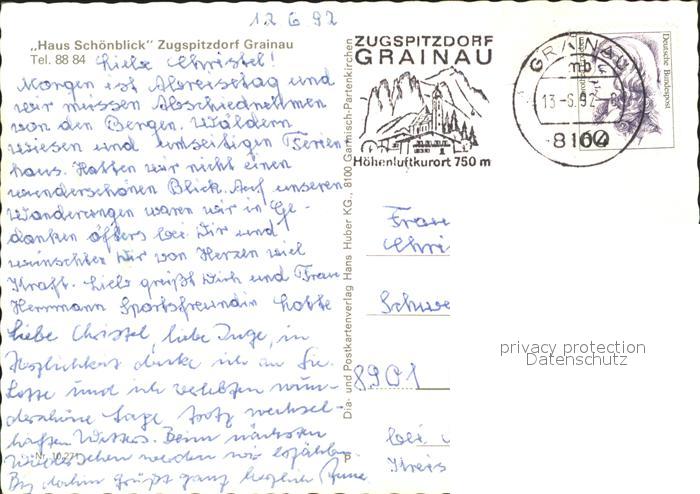 12 6 92
„Haus Schönblick" Zugspitzdorf Grainau
Tel. 88 84
Liebe Christel!
Morgen ist Abreisetag und
wir müssen Abschiednehmen
von den Bergen, Wäldern
wiesen und unseligen Ferien
haus. Hatten wir nicht einen
wunderschönen Blick. Auf unseren
Wanderungen waren wir in Ge-
danken öfters bei Dir und
wünschten Dir von Herzen viel
Kraft. Liebe grüßt Dich und Frau
Herrmann Sportsfreundin Lotte
Liebe Christel, liebe Inge, in
Herzlichkeit denke ich an Sie.
Lotte und ich verlebten wun-
derschöne Tage trotz wechsel-
haften Wetters. Beim nächsten
Wiedersehen werden wir erzählen.
Bis dahin grüßt ganz herzlich
Nr. 10.271
P
Dia- und Postkartenverlag Hans Huber KG., 8100 Garmisch-Partenkirchen
ZUGSPITZDORF
GRAINAU
Höhenluftkurort 750 m
GRAINAU
mb
13-6.92
8104
Deutsche Bundespost
Frau
Chri
Schwe
8901
bei
Kreis
privacy protection
Datenschutz